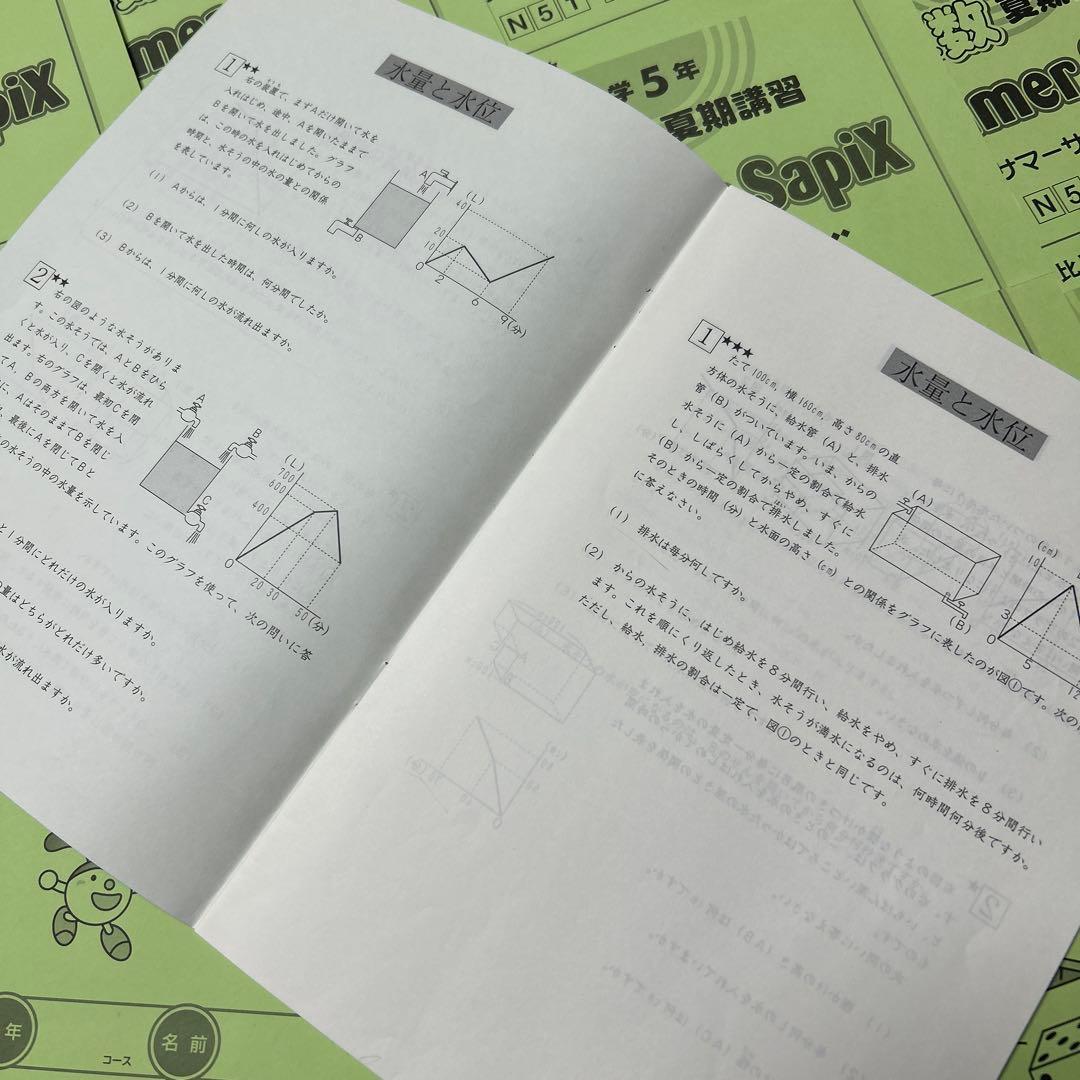 水量と水位
1 ★★
右の装置で、まずAだけ開いて水を
入れはじめ、途中、Aを開いたままで
Bを開いて水を出しました。グラフ
は、この時の水を入れはじめてからの
時間と、水そうの中の水の量との関係
を表しています。
(1) Aからは、1分間に何Lの水が入りますか。
(2) Bを開いて水を出した時間は、何分間でしたか。
(3) Bからは、1分間に何Lの水が流れ出ますか。
A
B
(L)
40
20
10
0
2
6
9(分)
2 ★★
右の図のような水そうがありま
す。この水そうでは、AとBをひら
くと水が入り、Cを開くと水が流れ
出ます。右のグラフは、最初Cを閉
てA、Bの両方を開いて水を入
に、AはそのままでBを閉じ
、最後にAを閉じてBと
の水そうの中の水量を示しています。このグラフを使って、次の問いに答
と1分間にどれだけの水が入りますか。
量はどちらがどれだけ多いですか。
水が流れ出ますか。
A
B
C
(L)
700
600
400
0
20
30
50(分)
水量と水位
1 ★★★
たて100cm, 横160cm, 高さ80cmの直
方体の水そうに、給水管(A)と、排水
管(B)がついています。いま、からの
水そうに(A)から一定の割合で給水
し、しばらくしてからやめ、すぐに
(B)から一定の割合で排水しました。
そのときの時間(分)と水面の高さ(cm)との関係をグラフに表したのが図①です。次の
に答えなさい。
(1) 排水は毎分何Lですか。
(2) からの水そうに、はじめ給水を8分間行い、給水をやめ、すぐに排水を8分間行い
ます。これを順にくり返したとき、水そうが満水になるのは、何時間何分後ですか。
ただし、給水、排水の割合は一定で、図①のときと同じです。
(A)
(B)
(cm)
10
3
0
5
12
学5年
夏期講習
SapiX
N51
数
夏期
ナマーサ
N5
比
piX
年
コース
名前